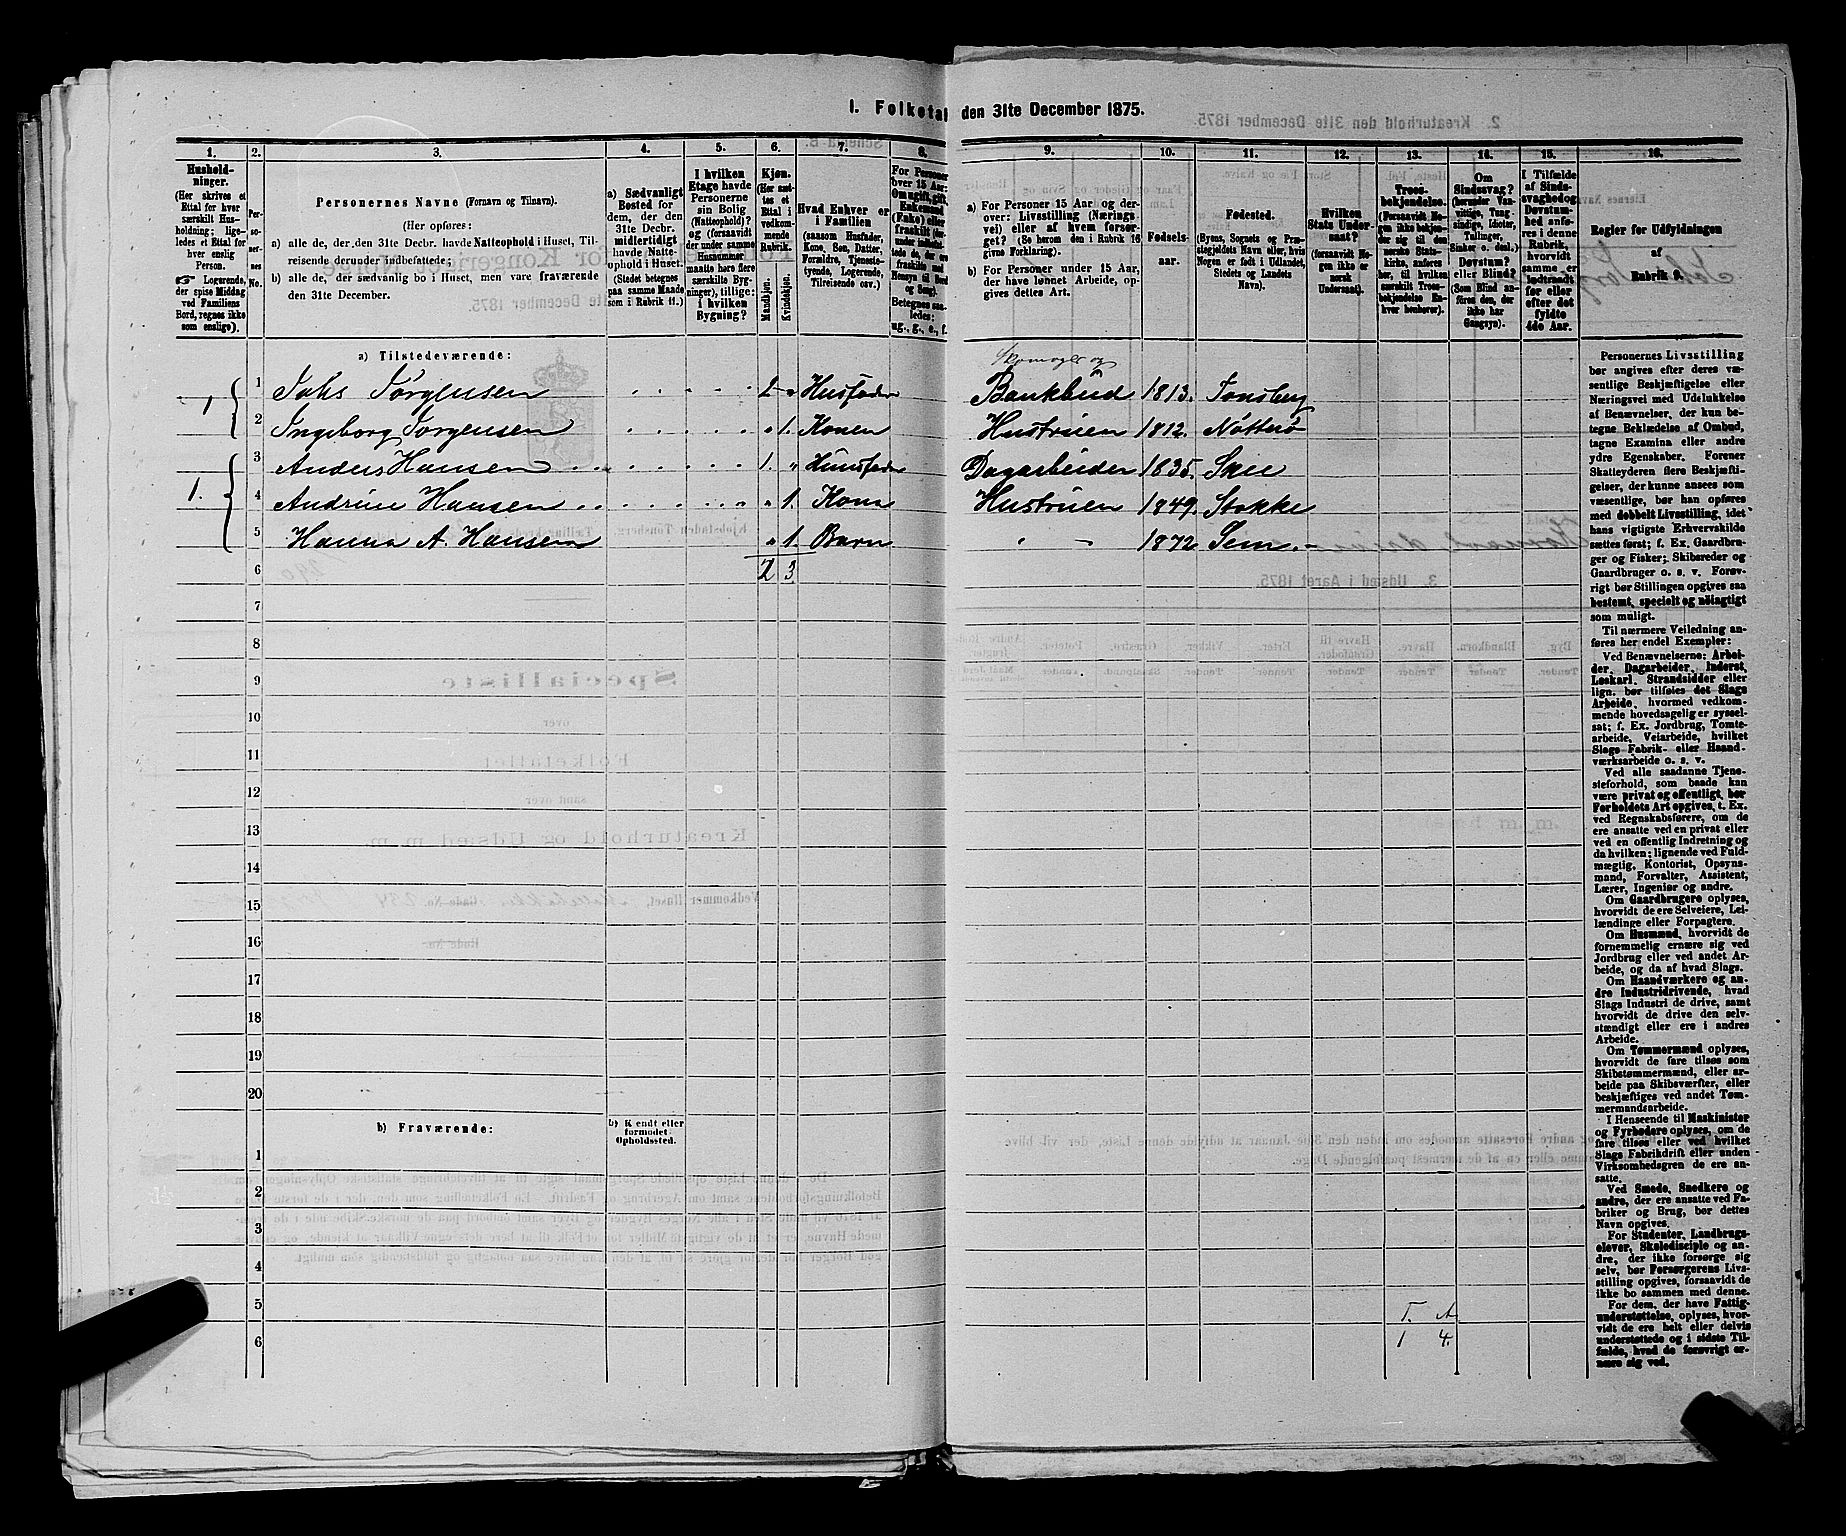 1. Folketal den 31te December 1875.
1. 2. 3. 4. 5. 6. 7. 8. 9. 10. 11. 12. 13. 14. 15. 16.
Hushold-
ninger.
(Her skrives et
Ettal for hver
særskilt Hus-
holdning; lige-
ledes et Ettal for
hver enslig
Person.
☞ Logerende,
der spise Middag
ved Familiens
Bord, regnes ikke
som enslige).
Per-
soner-
nes
No.
Personernes Navne (Fornavn og Tilnavn).
(Her opføres:
a) alle de, der den 31te Decbr. havde Natteophold i Huset, Til-
reisende derunder indbefattede;
b) alle de, der sædvanlig bo i Huset, men vare fraværende
den 31te December.
a) Sædvanligt
Bosted for
dem, der den
31te Decbr.
midlertidigt
havde Natte-
ophold i Huset.
(Stedet betegnes
paa samme Maade
som i Rubrik 11.)
I hvilken
Etage havde
Personerne
sin Bolig
(Natteophold)?
og (forsaavidt
der under samme
Husnummer
maatte høre flere
særskilte Byg-
ninger), tillige:
i hvilken
Bygning?
Kjøn.
(Her sæt-
tes et
Ettal i
vedkom-
mende
Rubrik.
Mandkjøn.
Kvindekjøn.
Hvad Enhver er
i Familien
(saasom Husfader,
Kone, Søn, Datter,
Forældre, Tjeneste-
tyende, Logerende,
Tilreisende osv.)
For Personer
over 15 Aar:
Omugift, gift,
Enkemand
(Enke) eller
fraskilt
Betegnes saa-
ledes:
ug., g., e., f.
a) For Personer 15 Aar og der-
over: Livsstilling (Nærings-
vei) eller af hvem forsør-
get? (Se herom den i Rubrik 16
givne Forklaring).
b) For Personer under 15 Aar,
der have lønnet Arbeide, op-
gives dettes Art.
Fødsels-
aar.
Fødested.
(Byens, Sognets og Præ-
stegjeldets Navn eller, hvis
Nogen er født i Udlandet,
Stedets og Landets
Navn).
Hvilken
Stats Under-
saat?
(forsaavidt No-
gen ikke er
norsk
Undersaat).
Troes-
bekjendelse.
(Forsaavidt No-
gen ikke bekjen-
der sig til den
norske Stats-
kirke, anføres
her, til hvilken
særskilt Troes-
bekjendelse En-
hver henhører).
Om
Sindssvag?
(herunder Van-
vittige, Tung-
sindige, Idioter,
Tullinger,
Sinker o. desl.)
Døvstum?
eller Blind?
(Som Blind an-
føres den, der
ikke har
Gangsyn).
I Tilfælde
af Sinds-
svaghed og
Døvstum-
hed anfø-
res i denne
Rubrik,
hvorvidt
samme er
indtraadt
før eller
efter det
fyldte
4de Aar.
Regler for Udfyldningen
af
Rubrik 9.
a) Tilstedeværende:
Skomager og
1 1 Johs Jørgensen 1 Husfader Bankbud 1813. Tønsberg
2 Ingeborg Jørgensen 1. Konen Hustruen 1812. Nøtterø
1. 3 Anders Hansen 1. Huusfader Dagarbeider 1835. Skee
4 Andrine Hansen 1. Kona Hustruen 1849. Stokke
5 Hanna A. Hansen 1. Barn 1872 Sem.
6 2 3
7
8
9
10
11
12
13
14
15
16
17
18
19
20
b) Fraværende:
b) Kjendt eller
formodet
Opholdssted.
1
2
3
4
5
6
T. A
1 4.
Personernes Livsstilling
bør angives efter deres væ-
sentlige Beskjæftigelse eller
Næringsvei med Udelukkelse
af Benævnelser, der kun be-
tegne Beklædelse af Ombud,
tagne Examina eller andre
ydre Egenskaber. Forener
Skatteyderen flere Beskjæfti-
gelser, der kunne ansees som
væsentlige, bør han opføres
med dobbelt Livsstilling, idet
hans vigtigste Erhvervskilde
sættes først; f. Ex. Gaardbru-
ger og Fisker; Skibsreder og
Gaardbruger o. s. v. Forøv-
rigt bør Stillingen opgives saa
bestemt, specielt og nøiagtigt
som muligt.
Til nærmere Veiledning an-
føres her endel Exempler:
Ved Benævnelserne: Arbei-
der, Dagarbeider, Inderst,
Løskarl, Strandsidder eller
lign. bør tilføies det Slags
Arbeide, hvormed vedkom-
mende hovedsagelig er syssel-
sat; f. Ex. Jordbrug, Tomte-
arbeide, Veiarbeide, hvilket
Slags Fabrik- eller Haand-
værksarbeide o. s. v.
Ved alle saadanne Tjene-
steforhold, som baade kan
være privat og offentligt, bør
Forholdets Art opgives, t. Ex.
ved Regnskabsførere, om de
ere ansatte ved en privat eller
ved en offentlig Indretning og
da hvilken; lignende ved Fuld-
mægtig, Kontorist, Opsyns-
mand, Forvalter, Assistent,
Lærer, Ingeniør og andre.
Om Gaardbrugere oplyses,
hvorvidt de ere Selveiere, Lei-
lændinge eller Forpagtere.
Om Husmænd, hvorvidt de
fornemmelig ernære sig ved
Jordbrug eller ved andet Ar-
beide, og da af hvad Slags.
Om Haandværkere og an-
dre Industridrivende, hvad
Slags Industri de drive, samt
hvorvidt de drive den selv-
stændigt eller ere i andres
Arbeide.
Om Tømmermænd oplyses,
hvorvidt de fare tilsøs som
Skibstømmermænd, eller ar-
beide paa Skibsværfter, eller
beskjæftiges ved andet Tøm-
mermandsarbeide.
I Henseende til Maskinister
og Fyrbødere oplyses, om de
fare tilsøs eller ved hvilket
Slags Fabrikdrift eller anden
Virksomhedsgren de ere an-
satte.
Ved Smede, Snedkere og
andre, der ere ansatte ved Fa-
briker og Brug, bør dettes
Navn opgives.
For Studenter, Landbrugs-
elever, Skoledisciple og an-
dre, der ikke forsørge sig
selv, bør Forsørgerens Livs-
stilling opgives, forsaavidt de
ikke bo sammen med denne.
For dem, der have Fattig-
understøttelse, oplyses, hvor-
vidt de ere helt eller delvis
understøttede og i sidste Til-
fælde, hvad de forøvrigt er-
nære sig ved.